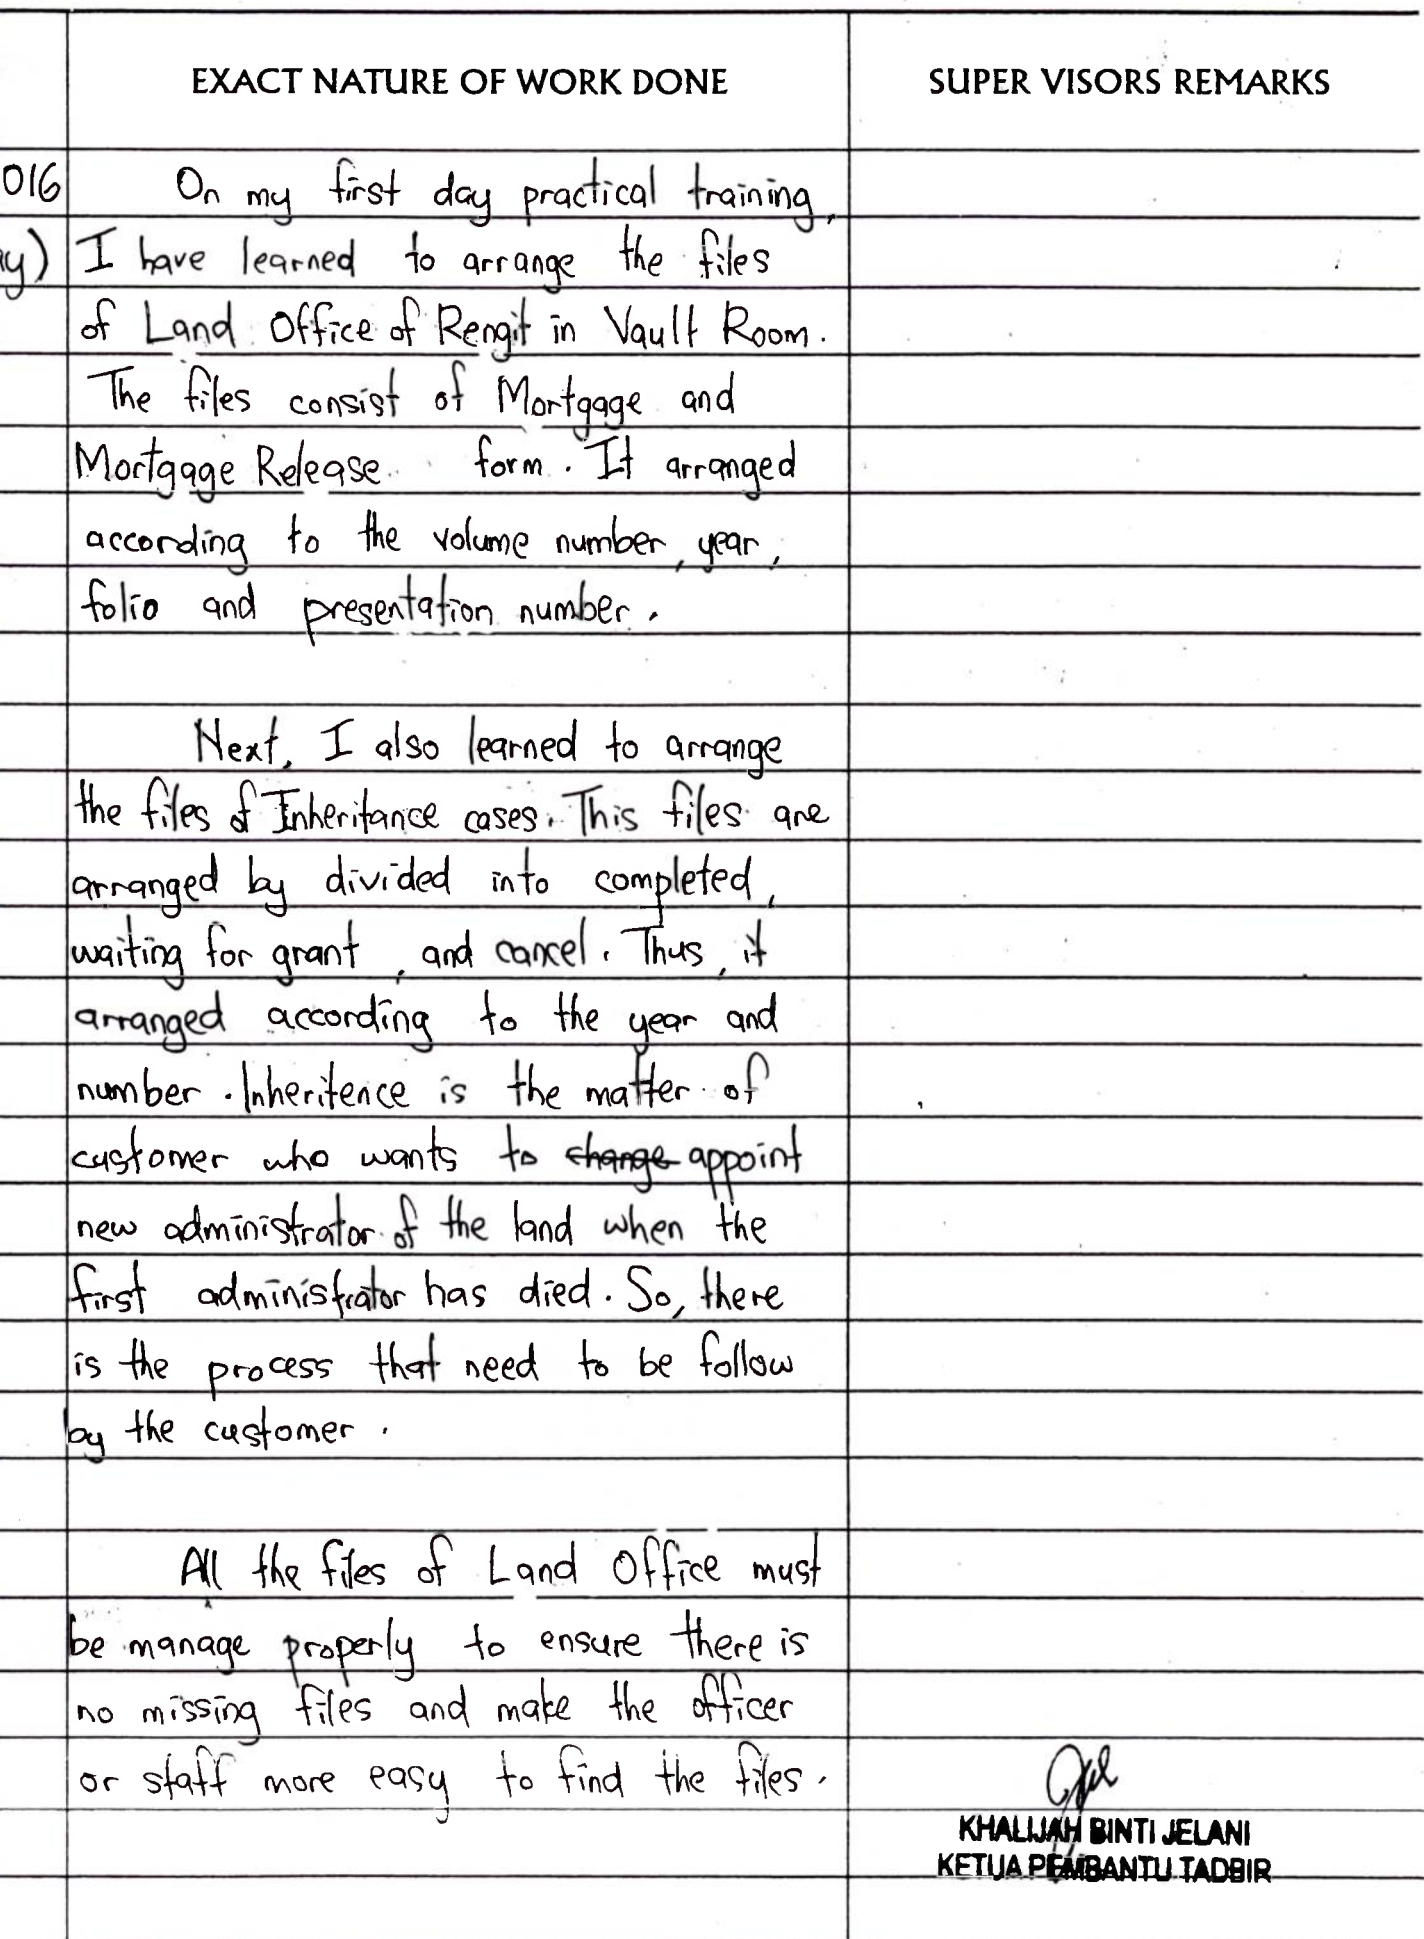 EXACT NATURE OF WORK DONE
SUPER VISORS REMARKS
016 On my first day practical training,
ay) I have learned to arrange the files
of Land Office of Rengit in Vault Room.
The files consist of Mortgage and
Mortgage Release form. It arranged
according to the volume number, year,
folio and presentation number.
Next, I also learned to arrange
the files of Inheritance cases. This files are
arranged by divided into completed,
waiting for grant, and cancel. Thus, it
arranged according to the year and
number. Inheritence is the matter of
customer who wants to change appoint
new administrator of the land when the
first administrator has died. So, there
is the process that need to be follow
by the customer.
All the files of Land Office must
be manage properly to ensure there is
no missing files and make the officer
or staff more easy to find the files.
KHALIJAH BINTI JELANI
KETUA PEMBANTU TADBIR